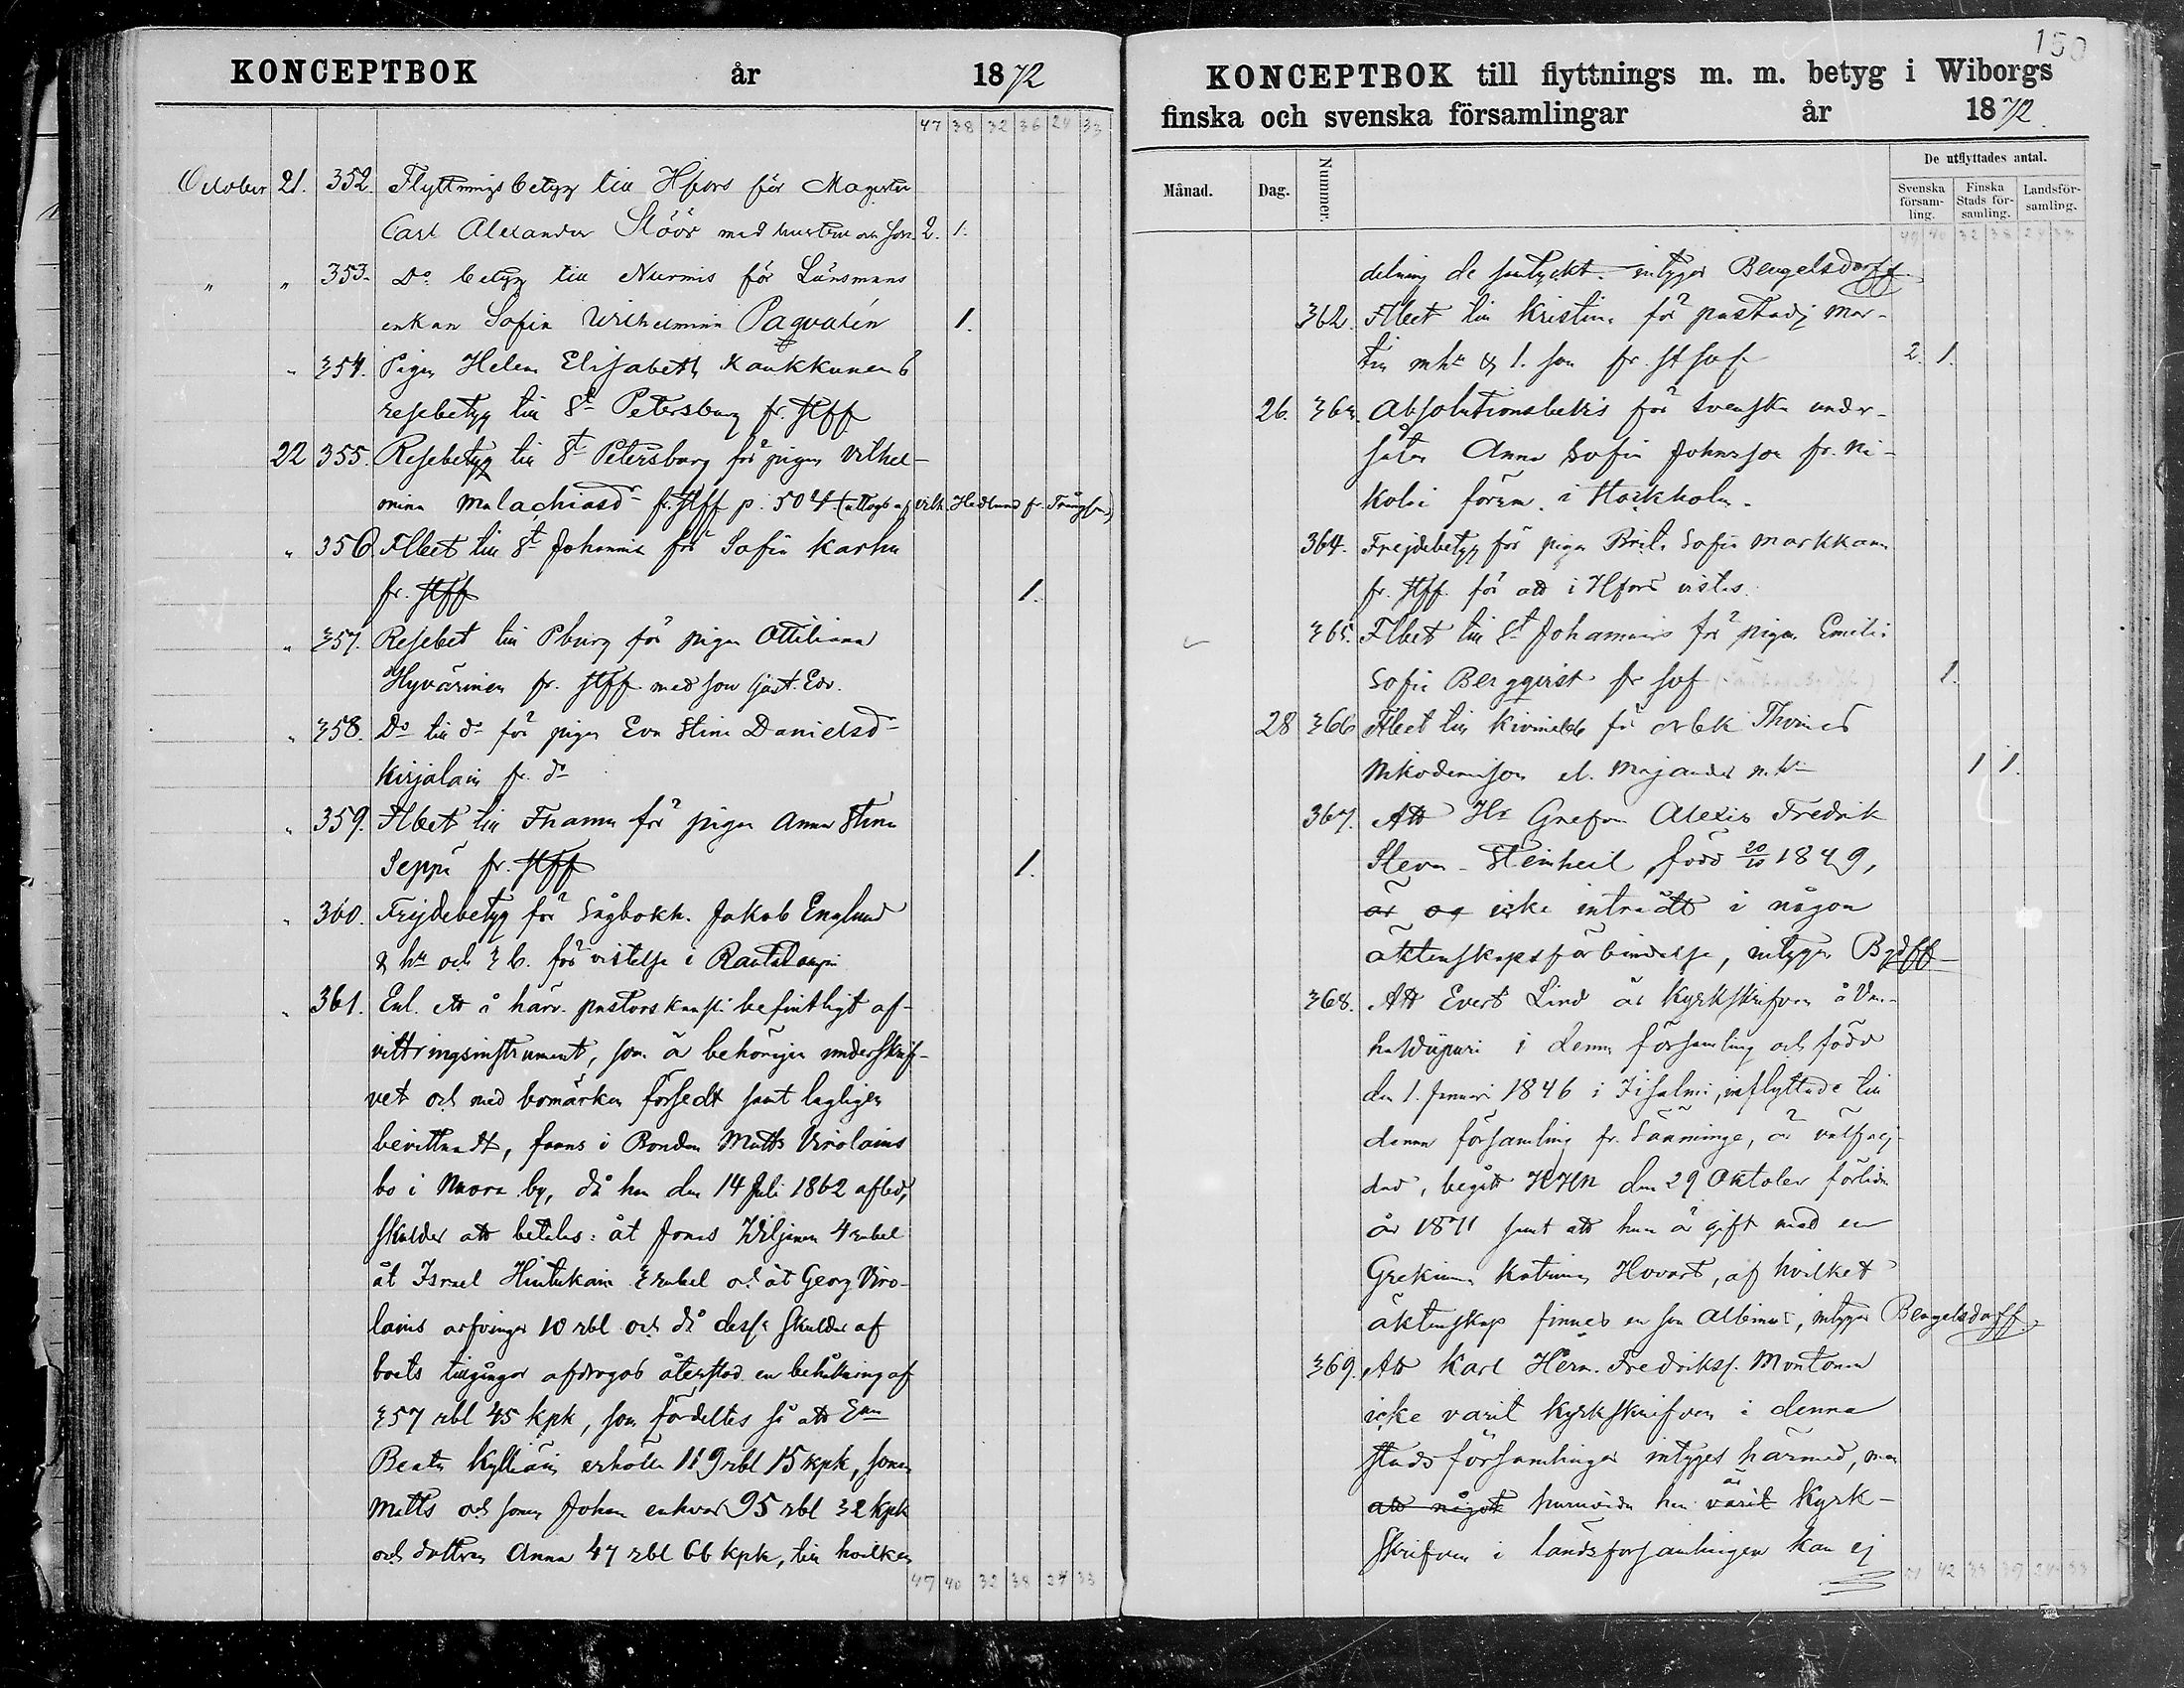 KONCEPTBOK år 1872
47 38 32 36 24 33
October 21. 352. Flyttningsbetyg till Hfors för Magister
Carl Alexander Slöör med hustru och son. 2. 1.
" " 353. Do betyg till Nurmis för Länsmans
enkan Sofia Wilhelmina Paqvalén 1.
" 354. Pigan Helena Elisabeth Kaukkunens
resebetyg till St Petersburg fr. Hff
22 355. Resebetyg till St Petersburg för pigan Vilhel-
mina Malachiasdr fr. Hff p. 504 (uttogs af Vilh. Hedlund fr.
" 356. Flbet till St Johannis för Sofia Karhu
fr. Hff 1.
" 357. Resebet till Pburg för pigan Ottiliana
Hyvärinen fr. Hff med son Gust. Edv.
" 358. Do till do för pigan Eva Stina Danielsdr
Kirjalain fr. do
" 359. Flbet till Thama för pigan Anna Stina
Seppä fr. Hff 1.
" 360. Frejdebetyg för Sågbokh. Jakob Englund
& hu och 3 b. för vistelse i Rautalampi
" 361. Enl. ett å härv. pastorskansli befintligt af-
vittringsinstrument, som är behörigen underskrif-
vet och med bomärken försedt samt lagligen
bevittnadt, fanns i Bonden Matts Virolains
bo i Nuora by, då han den 14 Juli 1862 afled,
skulder att betalas: åt Jonas Wiljanen 4 rubel
åt Israel Hintukain 3 rubel och åt Georg Viro-
lains arfvingar 10 rbl och då dessa skulder af
boets tillgångar afdrogos återstod en behållning af
357 rbl 45 kpk, som fördeltes så att Enn
Beata Kylliäin erhöll 119 rbl 15 kpk, sonen
Matts och sonen Johan enhvar 95 rbl 32 kpk
och dottren Anna 47 rbl 66 kpk, till hvilken
47 40 32 38 24 33
150
KONCEPTBOK till flyttnings m. m. betyg i Wiborgs
finska och svenska församlingar år 1872.
Månad. Dag. Nummer. De utflyttades antal.
Svenska församling. Finska Stads församling. Landsförsamling.
49 40 32 38 24 33
delning de samtyckt. intygar Bengelsdorff.
362. Flbet till Kristina för pastadj Mar-
tin m hu & 1. son fr. st svf 2. 1.
26. 363. Absolutionsbevis för svenska under-
såten Anna Sofia Johnsson fr. Ni-
kolai försm. i Stockholm.
364. Frejdebetyg för pigan Brita Sofia Markkan
fr. Hff. för att i Hfors vistas.
365. Flbet till St Johannis för pigan Emilia
Sofia Bergqvist fr svf 1.
28 366 Flbet till Kivinebb för arbk Thomas
Nikodemsson el. Majander m. hu 1 1.
367. Att Hr Grefven Alexis Fredrik
Steven-Steinheil, född 20/10 1849,
är og icke inträdt i någon
äktenskapsförbindelse, intygar Bgdff
368. Att Evert Lind är kyrkskrifven å Van-
ha Wiipuri i denna församling och född
den 1. Januari 1846 i Iisalmi, inflyttade till
denna församling fr. Sääminge, är välfrej-
dad, begått HHN den 29 Oktober förlidne
år 1871 samt att han är gift med en
Grekinna Katrina Hovart, af hvilket
äktenskap finnes en son Albinus, intygar Bengelsdorff.
369. Att Karl Herm. Fredrikss. Montonen
icke varit kyrkskrifven i denna
stadsförsamlingen intygas härmed, men
att något huruvida han är varit kyrk-
skrifven i landsförsamlingen kan ej
51 42 33 39 24 33